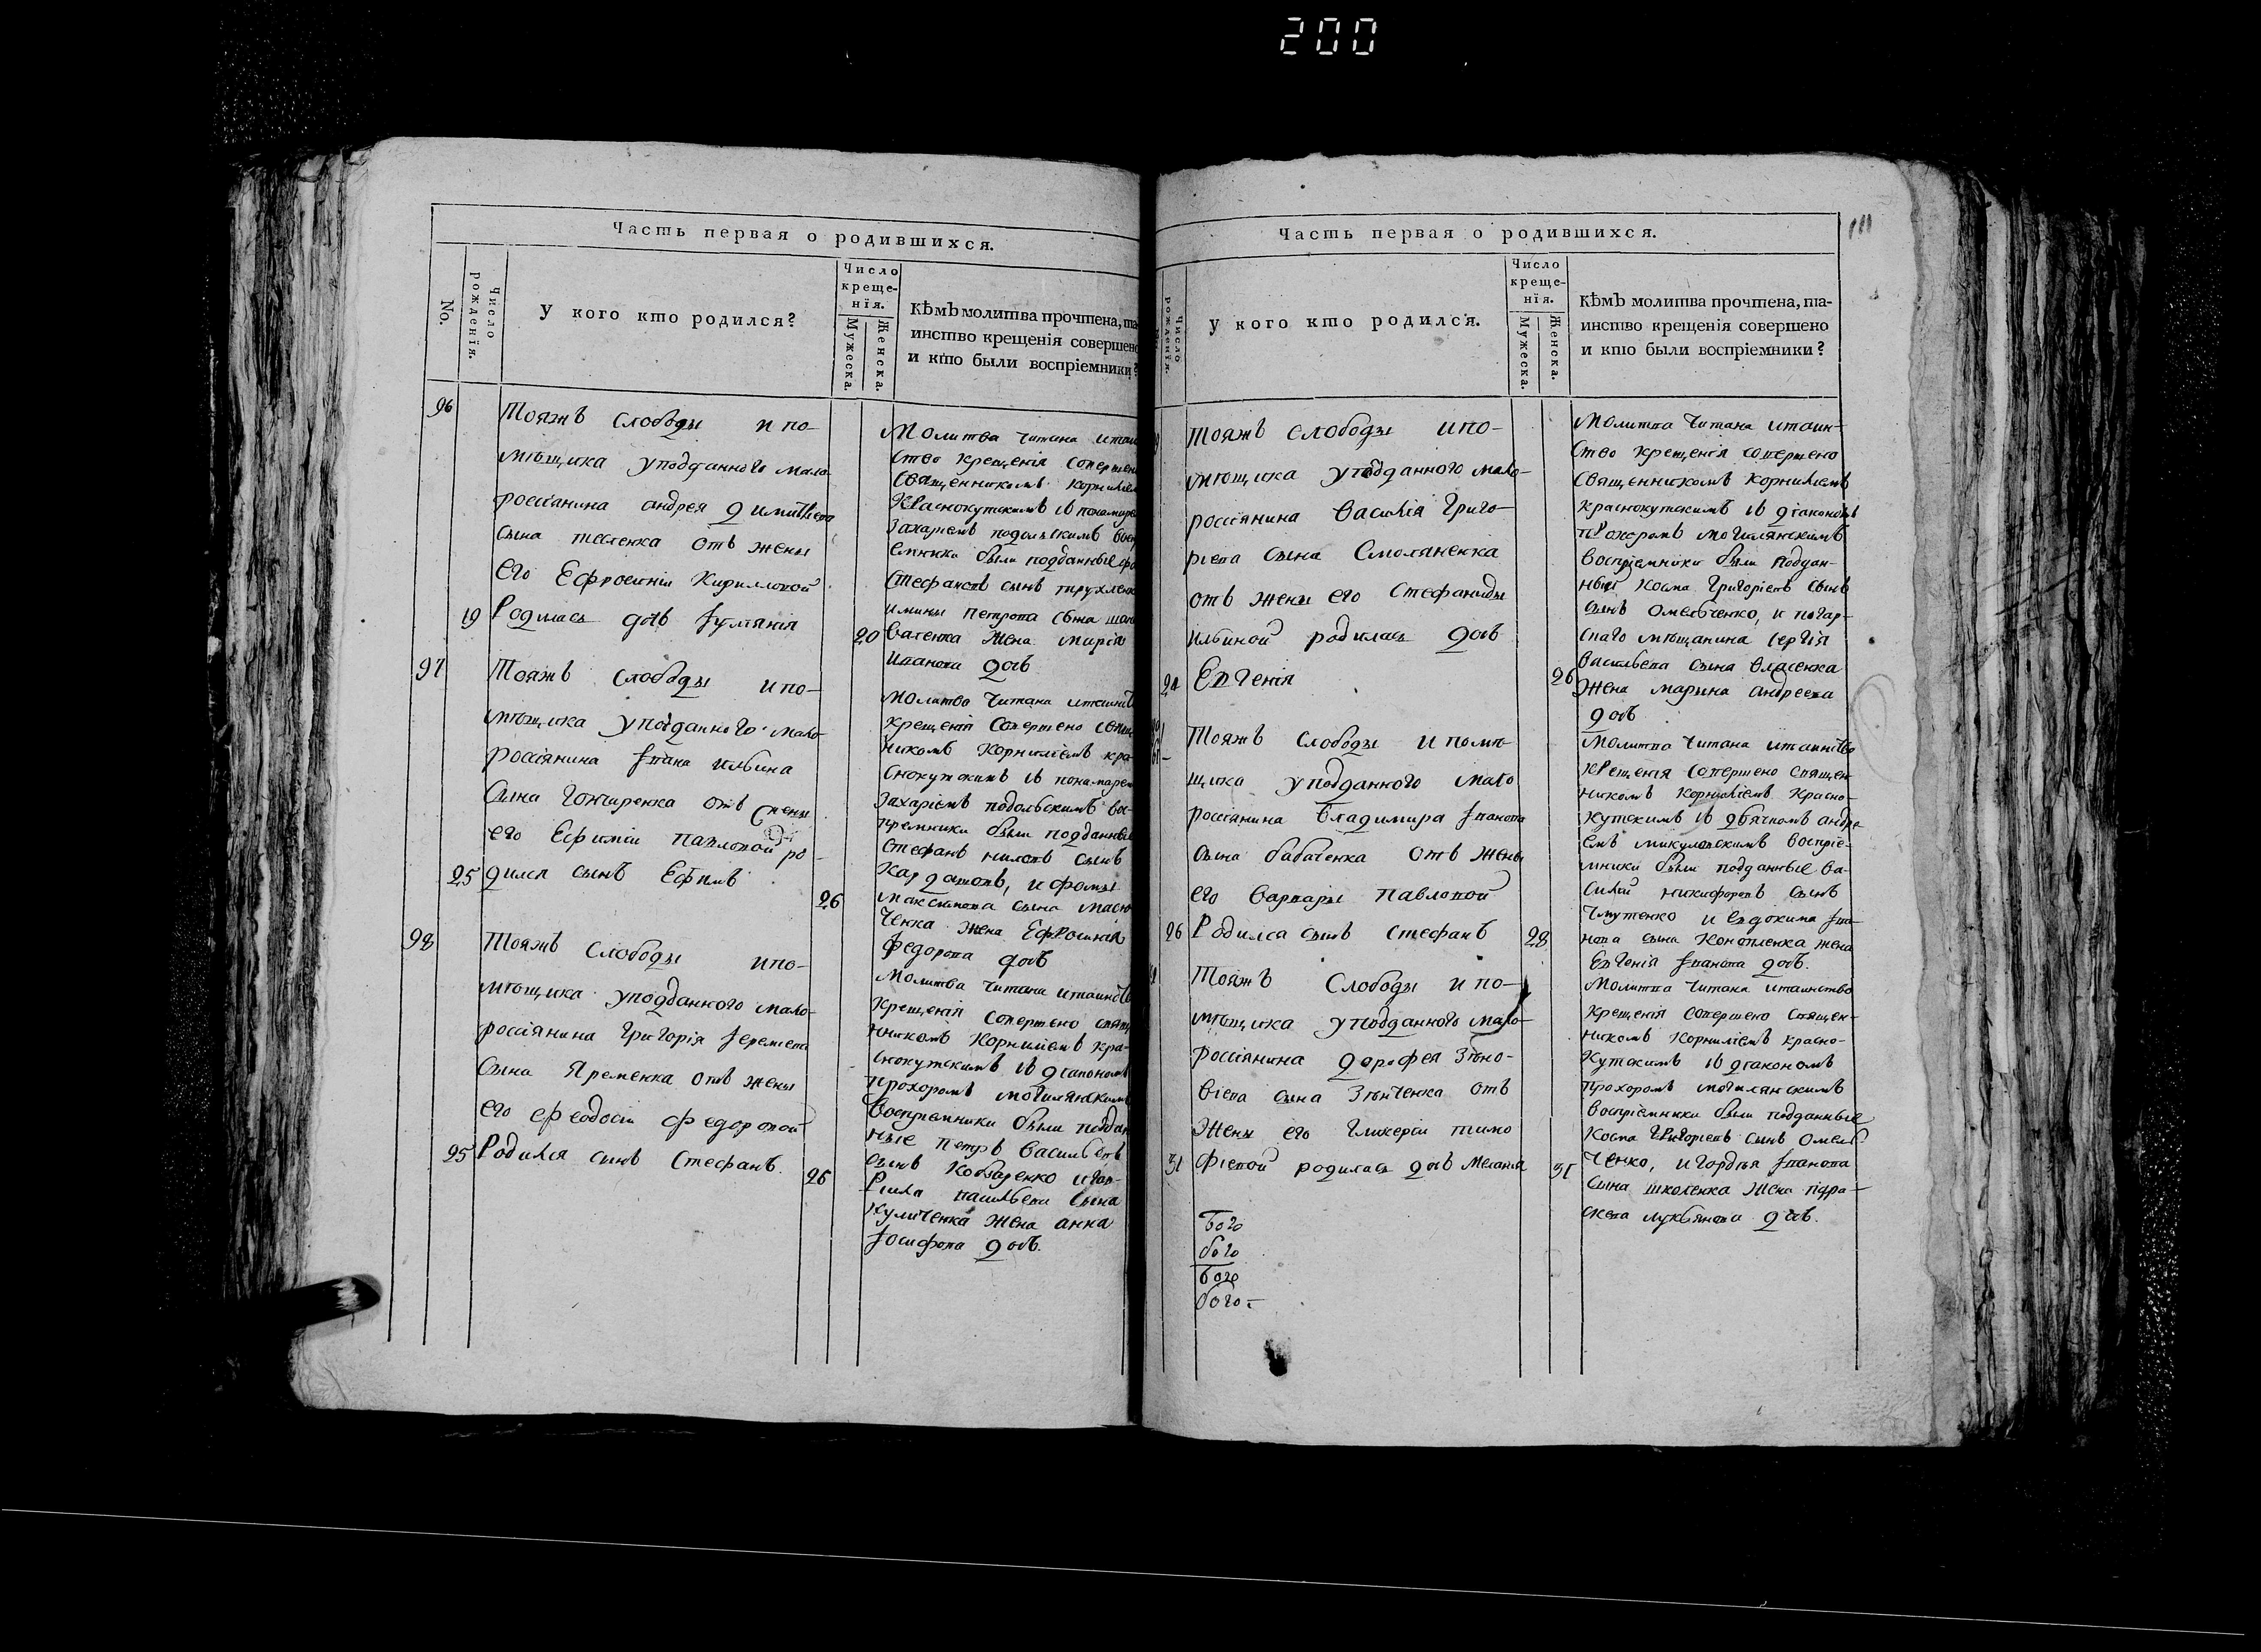 200
Часть первая о родившихся.
No.
Число рожденія.
У кого кто родился?
Число
креще-
нія.
Мужеска.
Женска.
КѢмЪ молитва прочтена, та
инство крещенія совершено
и кто были воспріемники?
96
Тояжъ Слободы и по-
мѣщика уподданного мало-
россіянина андрея димитріева
сына тесленка отъ жены
его Ефросиніи Кирилловой
19 Родилась дочь Іулианія
20
Молитва читана итаин
ство крещенія совершен
Священникомъ Корниліем
Краснокутскимъ ів пономаре
Захаріемъ подольскимъ восп
емники были подданные
Стефановъ сынъ
имины петрова сына
жена марія
иванова дочь
97
Тояжъ слободы и по-
мѣщика уподданного мало-
россіянина Івана ильина
сына гончаренка отъ жены
его Ефиміи павловой ро-
25 дился сынъ Ефимъ
26
молитва читана итаинств
крещенія совершено свяще
никомъ Корниліемъ кра-
снокутскимъ ів понамарем
Захаріемъ подольскимъ вос-
пріемники были подданные
Стефанъ ниловъ сынъ
Кардашовъ, и фомы
максимова сына
ченка жена Ефросинія
федорова дочь
98
Тояжъ Слободы и по-
мѣщика уподданного мало-
россіянина григорія Іеремеева
сына Яременка отъ жены
его феодосіи федоровой
25 Родился сынъ Стефанъ.
26
Молитва читана итаинство
крещенія совершено свяще
нникомъ Корниліемъ кра-
снокутскимъ ів діакономъ
прохоромъ могилянскимъ
воспріемники были поддан
ные петръ васильевъ
сынъ Кобзаренко игав-
рила васильева сына
куличенка жена анна
Іосифова дочь.
111
Часть первая о родившихся.
Число рожденія.
У кого кто родился.
Число
креще-
нія.
Мужеска.
Женска.
КѢмЪ молитва прочтена, та-
инство крещенія совершено
и кто были воспріемники?
Тояжъ слободы ипо-
мѣщика уподданного мало-
россіянина василія григо-
ріева сына Смоляненка
отъ жены его Стефаниды
ильиной родилась дочь
24 Евгенія
26
Молитва читана итаин-
ство крещенія совершено
Священникомъ Корниліемъ
краснокутскимъ ів діакономъ
прохоромъ могилянскимъ
воспріемники были поддан-
ный косма григоріевъ сынъ
сынъ омельченко, и погар-
скаго мѣщанина сергія
васильева сына власенка
жена марина андреева
дочь
Тояжъ слободы и помѣ-
щика уподданного мало
россіянина Владимира Іванова
сына бабаченка отъ жены
его варвары павловой
26 Родился сынъ Стефанъ
28
Молитва читана итаинство
крещенія совершено священ-
никомъ корниліемъ красно-
кутскимъ ів дьячкомъ андре
емъ микулинскимъ воспріе-
мники были подданные ва-
силій никифоровъ сынъ
чмутенко и евдокима Іва-
нова сына конопленка жена
Евгенія Іванова дочь.
Тояжъ Слободы и по-
мѣщика уподданного мало-
россіянина дорофея Зѣно-
віева сына Зѣнченка отъ
жены его гликеріи тимо
31 фіевой родилась дочь Меланія
31
молитва читана итаинство
крещенія совершено Священ-
никомъ корниліемъ красно-
кутскимъ ів діакономъ
прохоромъ могилянскимъ
воспріемники были подданные
косма григоріевъ сынъ омель
ченко, и гордѣя Іванова
сына школенка жена пара-
скева лукьянова дочь.
Того
бого
Того
бого-